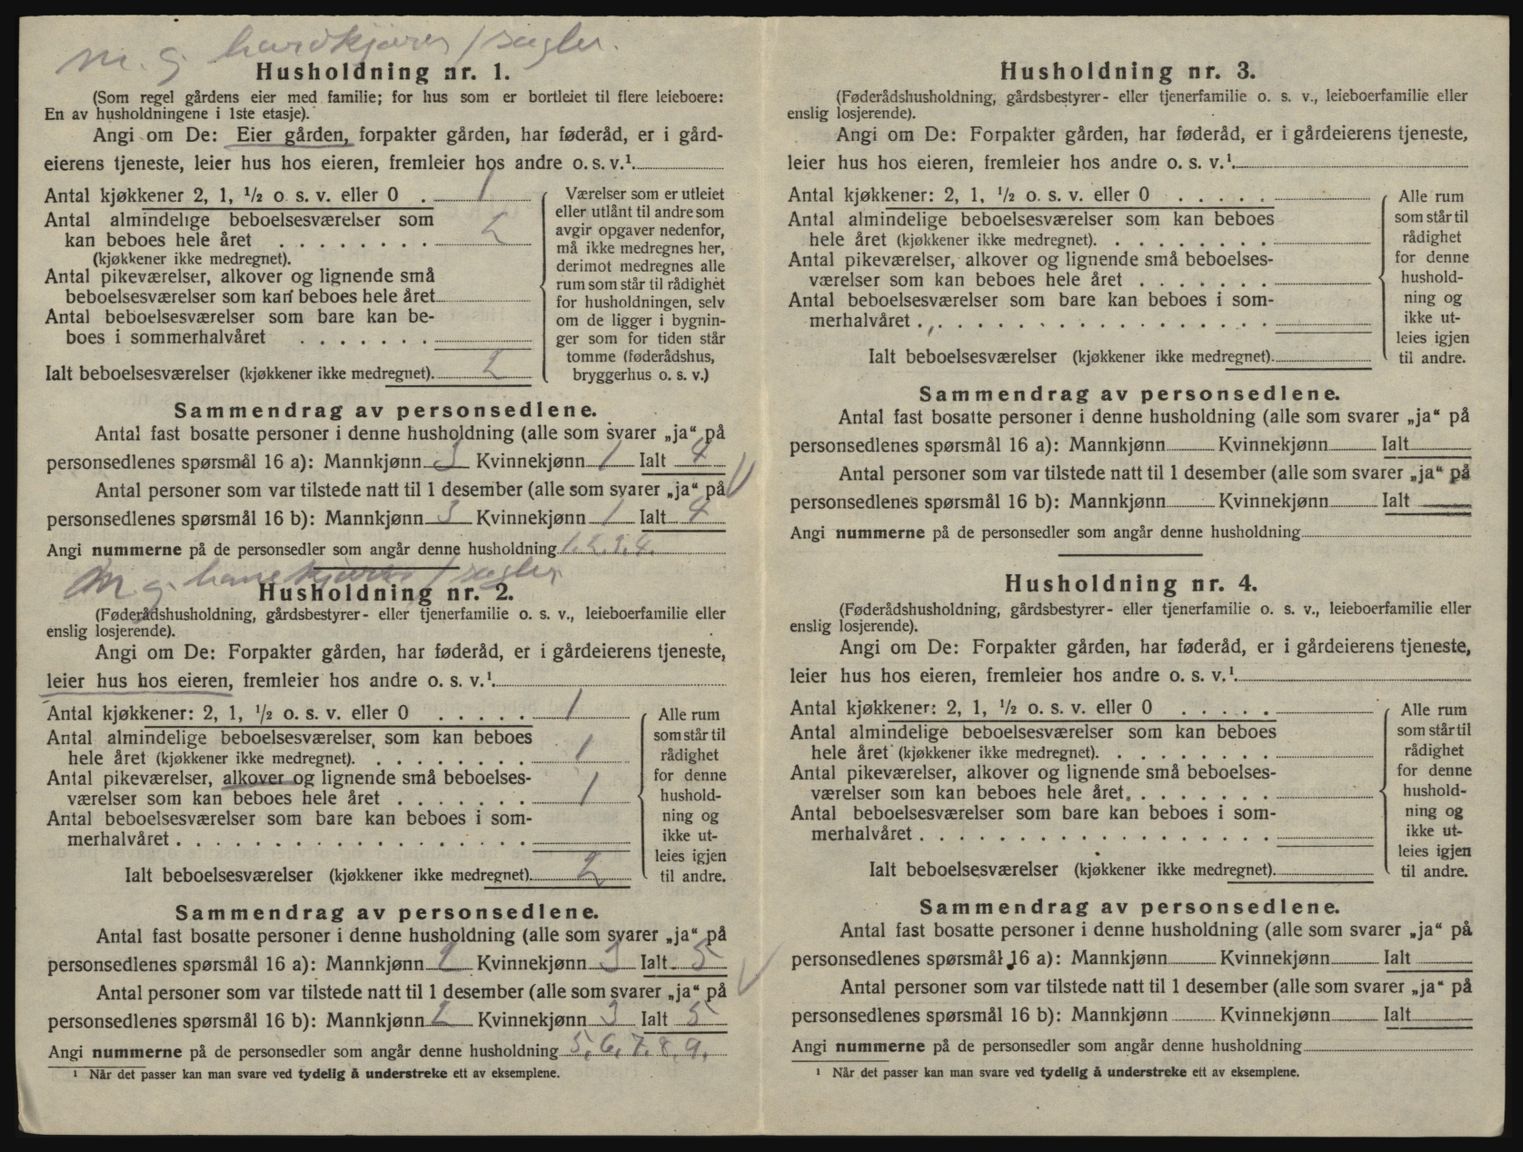 m. g. handkjører / sagler.
Husholdning nr. 1.
(Som regel gårdens eier med familie; for hus som er bortleiet til flere leieboere:
En av husholdningene i 1ste etasje).
Angi om De: Eier gården, forpakter gården, har føderåd, er i gård-
eierens tjeneste, leier hus hos eieren, fremleier hos andre o. s. v.¹
Antal kjøkkener 2, 1, ½ o. s. v. eller 0 . 1
Antal almindelige beboelsesværelser som
kan beboes hele året . . . . . . . . 2
(kjøkkener ikke medregnet).
Antal pikeværelser, alkover og lignende små
beboelsesværelser som kan beboes hele året
Antal beboelsesværelser som bare kan be-
boes i sommerhalvåret . . . . . . .
Ialt beboelsesværelser (kjøkkener ikke medregnet). 2
Værelser som er utleiet
eller utlånt til andre som
avgir opgaver nedenfor,
må ikke medregnes her,
derimot medregnes alle
rum som står til rådighet
for husholdningen, selv
om de ligger i bygnin-
ger som for tiden står
tomme (føderådshus,
bryggerhus o. s. v.)
Sammendrag av personsedlene.
Antal fast bosatte personer i denne husholdning (alle som svarer „ja“ på
personsedlenes spørsmål 16 a): Mannkjønn 3 Kvinnekjønn 1 Ialt 4
Antal personer som var tilstede natt til 1 desember (alle som svarer „ja“ på
personsedlenes spørsmål 16 b): Mannkjønn 3 Kvinnekjønn 1 Ialt 4
Angi nummerne på de personsedler som angår denne husholdning 1. 2. 3. 4.
m. g. / sagler
Husholdning nr. 2.
(Føderådshusholdning, gårdsbestyrer- eller tjenerfamilie o. s. v., leieboerfamilie eller
enslig losjerende).
Angi om De: Forpakter gården, har føderåd, er i gårdeierens tjeneste,
leier hus hos eieren, fremleier hos andre o. s. v.¹
Antal kjøkkener: 2, 1, ½ o. s. v. eller 0 . . . . . 1
Antal almindelige beboelsesværelser som kan beboes
hele året (kjøkkener ikke medregnet). . . . . . . . 1
Antal pikeværelser, alkover og lignende små beboelses-
værelser som kan beboes hele året . . . . . . . 1
Antal beboelsesværelser som bare kan beboes i som-
merhalvåret . . . . . . . . . . . . . . . . . .
Ialt beboelsesværelser (kjøkkener ikke medregnet). 2
Alle rum
som står til
rådighet
for denne
hushold-
ning og
ikke ut-
leies igjen
til andre.
Sammendrag av personsedlene.
Antal fast bosatte personer i denne husholdning (alle som svarer „ja“ på
personsedlenes spørsmål 16 a): Mannkjønn 2 Kvinnekjønn 3 Ialt 5
Antal personer som var tilstede natt til 1 desember (alle som svarer „ja“ på
personsedlenes spørsmål 16 b): Mannkjønn 2 Kvinnekjønn 3 Ialt 5
Angi nummerne på de personsedler som angår denne husholdning 5. 6. 7. 8. 9.
¹ Når det passer kan man svare ved tydelig å understreke ett av eksemplene.
Husholdning nr. 3.
(Føderådshusholdning, gårdsbestyrer- eller tjenerfamilie o. s. v., leieboerfamilie eller
enslig losjerende).
Angi om De: Forpakter gården, har føderåd, er i gårdeierens tjeneste,
leier hus hos eieren, fremleier hos andre o. s. v.¹
Antal kjøkkener: 2, 1, ½ o. s. v. eller 0 . . . . .
Antal almindelige beboelsesværelser som kan beboes
hele året (kjøkkener ikke medregnet). . . . . . . .
Antal pikeværelser, alkover og lignende små beboelses-
værelser som kan beboes hele året . . . . . . .
Antal beboelsesværelser som bare kan beboes i som-
merhalvåret . . . . . . . . . . . . . . . . . .
Ialt beboelsesværelser (kjøkkener ikke medregnet).
Alle rum
som står til
rådighet
for denne
hushold-
ning og
ikke ut-
leies igjen
til andre.
Sammendrag av personsedlene.
Antal fast bosatte personer i denne husholdning (alle som svarer „ja“ på
personsedlenes spørsmål 16 a): Mannkjønn Kvinnekjønn Ialt
Antal personer som var tilstede natt til 1 desember (alle som svarer „ja“ på
personsedlenes spørsmål 16 b): Mannkjønn Kvinnekjønn Ialt
Angi nummerne på de personsedler som angår denne husholdning
Husholdning nr. 4.
(Føderådshusholdning, gårdsbestyrer- eller tjenerfamilie o. s. v., leieboerfamilie eller
enslig losjerende).
Angi om De: Forpakter gården, har føderåd, er i gårdeierens tjeneste,
leier hus hos eieren, fremleier hos andre o. s. v.¹
Antal kjøkkener: 2, 1, ½ o. s. v. eller 0 . . . . .
Antal almindelige beboelsesværelser som kan beboes
hele året (kjøkkener ikke medregnet). . . . . . . .
Antal pikeværelser, alkover og lignende små beboelses-
værelser som kan beboes hele året . . . . . . .
Antal beboelsesværelser som bare kan beboes i som-
merhalvåret . . . . . . . . . . . . . . . . . .
Ialt beboelsesværelser (kjøkkener ikke medregnet).
Alle rum
som står til
rådighet
for denne
hushold-
ning og
ikke ut-
leies igjen
til andre.
Sammendrag av personsedlene.
Antal fast bosatte personer i denne husholdning (alle som svarer „ja“ på
personsedlenes spørsmål 16 a): Mannkjønn Kvinnekjønn Ialt
Antal personer som var tilstede natt til 1 desember (alle som svarer „ja“ på
personsedlenes spørsmål 16 b): Mannkjønn Kvinnekjønn Ialt
Angi nummerne på de personsedler som angår denne husholdning
¹ Når det passer kan man svare ved tydelig å understreke ett av eksemplene.